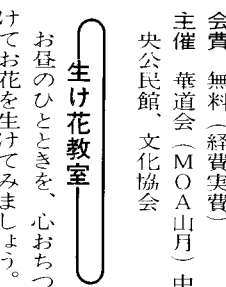 会費　無料（経費実費）
主催　華道会（ＭＯＡ山月）中
央公民館、文化協会
生け花教室
お昼のひとときを、心おちつ
けてお花を生けてみましょう。